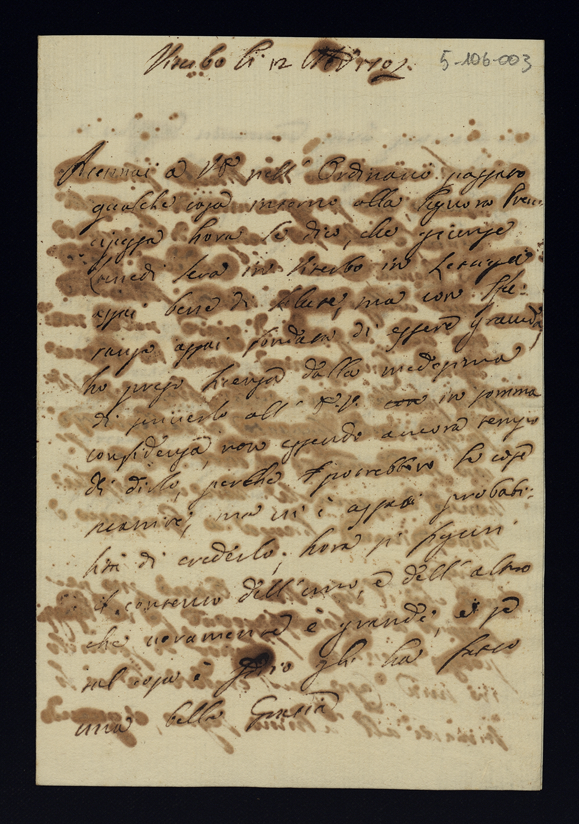 Viterbo li 12 1702.
5-106-003
Accennai a V.S. nell' Ordinario passato
qualche cosa intorno alla Signora Pren-
cipessa hora le dico, che giunse
lunedì sera in Viterbo in
assai bene di salute, ma con spe-
ranza assai fondata di essere gravida,
ho preso licenza dalla medesima
di scriverlo all' in somma
confidenza, non essendo ancora tempo
di dirlo, perche potrebbero le cose
svanire, ma vi è assai probabi-
lità di crederlo; hora si figuri
il contento dell' uno, e dell' altro
che veramente è grande; et se
tal cosa è Iddio gli ha fatto
una bella Grazia